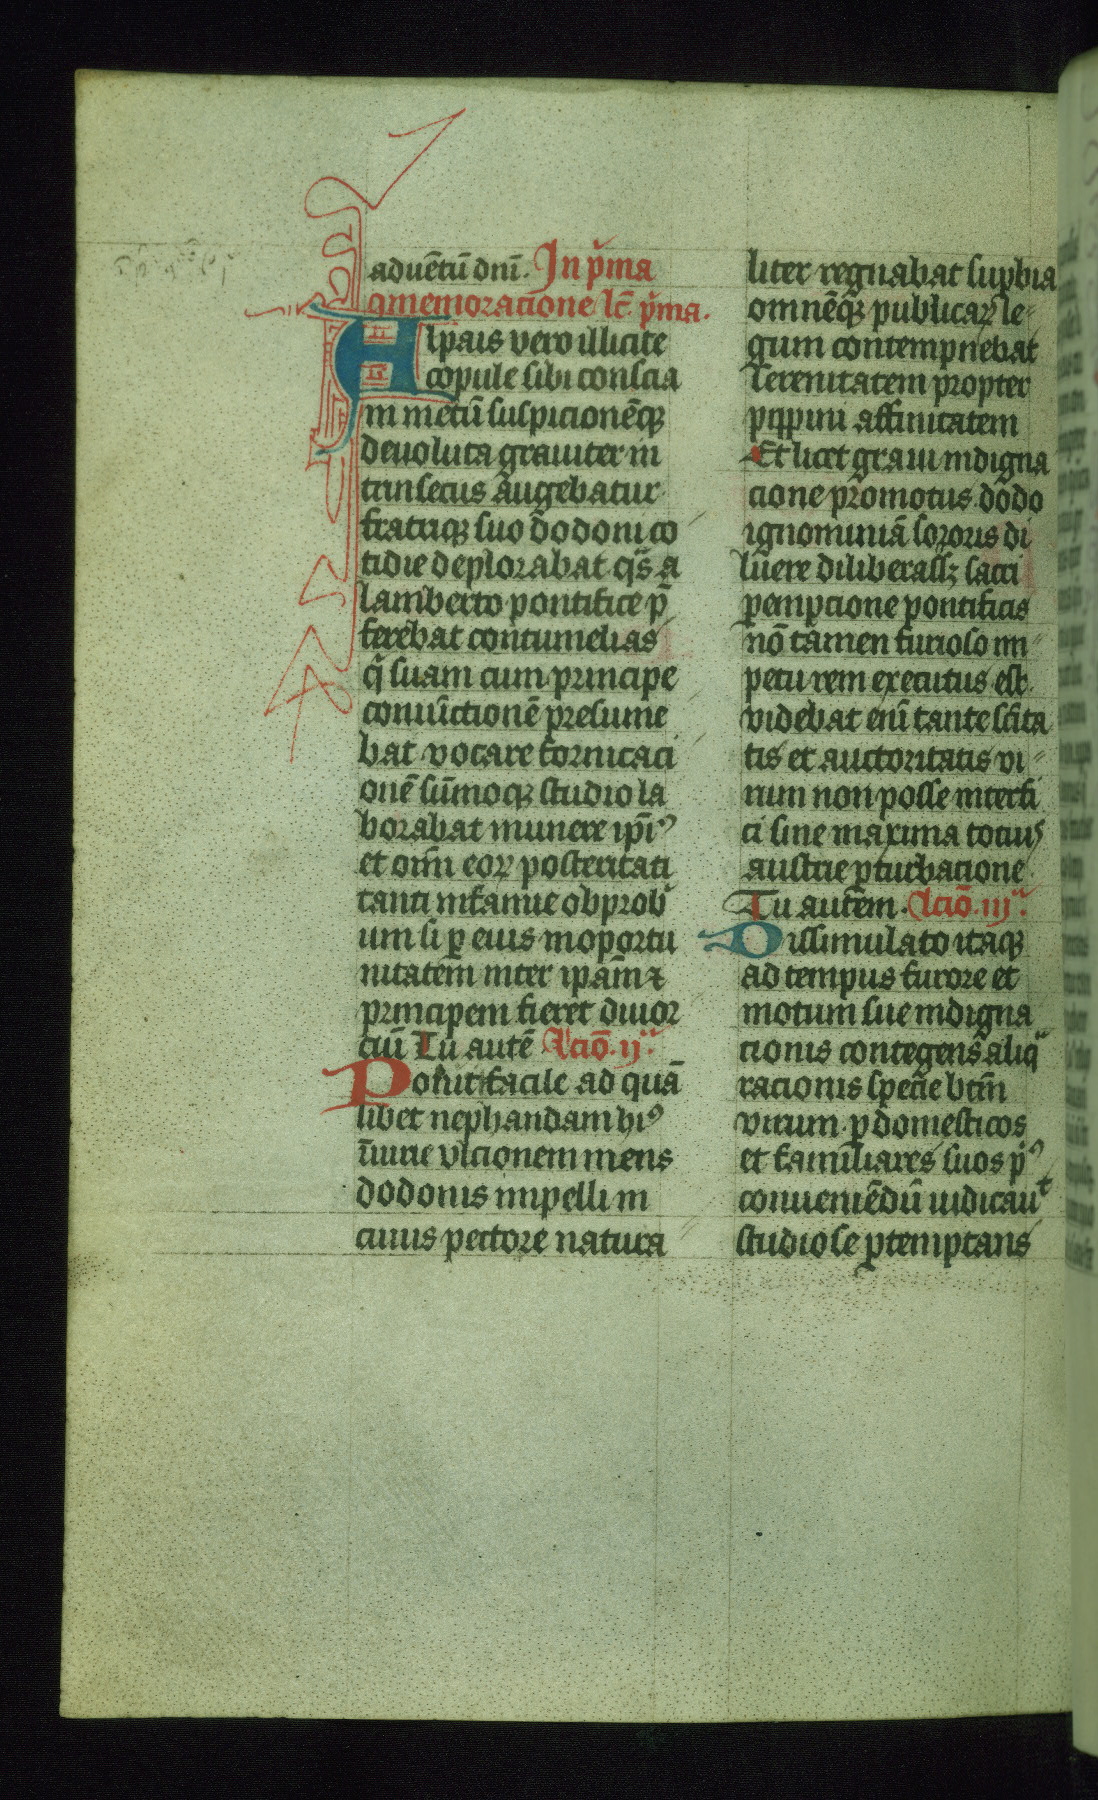 aduētū dnī. In pͥma
ꝯmemoracione lc̄ pͥma.
Alpais vero illicite
copule sibi conscia
in metū suspicionēqꝫ
deuoluta grauiter in
trinsecus augebatur
fratriqꝫ suo dodoni co
tidie deplorabat qͣs a
lamberto pontifice p̄
ferebat contumelias
qͥ suam cum principe
coniūctionē presume
bat vocare fornicaci
onē sūmoqꝫ studio la
borabat munere ip̄iꝰ
et om̄i eoꝝ posteritati
tanti infamie obprobͥ
um si ꝑ eius inoportu
nitatem inter ipām ⁊
principem fieret diuor
ciū Tu autē Lcio͞. ijͣ.
Potuit facile ad quā
libet nephandam hiꝰ
iniurie vlcionem mens
dodonis impelli in
cuius pectore natura
liter regnabat suꝑbia
omnēqꝫ publicaꝝ le
gum contempnebat
serenitatem propter
pippini affinitatem
Et licet graui indigna
cione promotus dodo
ignominiā sororis di
luere diliberassꝫ sacri
ꝑempcione pontificis
nō tamen furioso im
petu rem executus est
videbat eni̅ tante sc̅ita
tis et auctoritatis vi
rum non posse interfi
ci sine maxima tociꝰ
austrie ꝑturbacione
Tu autem. Lcio͞. iijͣ.
Dissimulato itaqꝫ
ad tempus furore et
motum sue indigna
tionis contegens aliqͣ
racionis specie btm̄
virum ꝑ domesticos
et familiares suos pͥꝰ
conueniēdū iudicauͭ
studiose ꝑtemptans